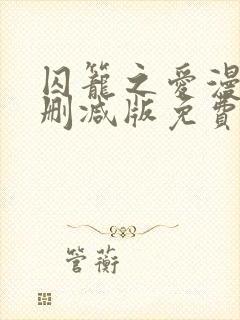 囚籠之愛漫
刪減版免費
管蘅